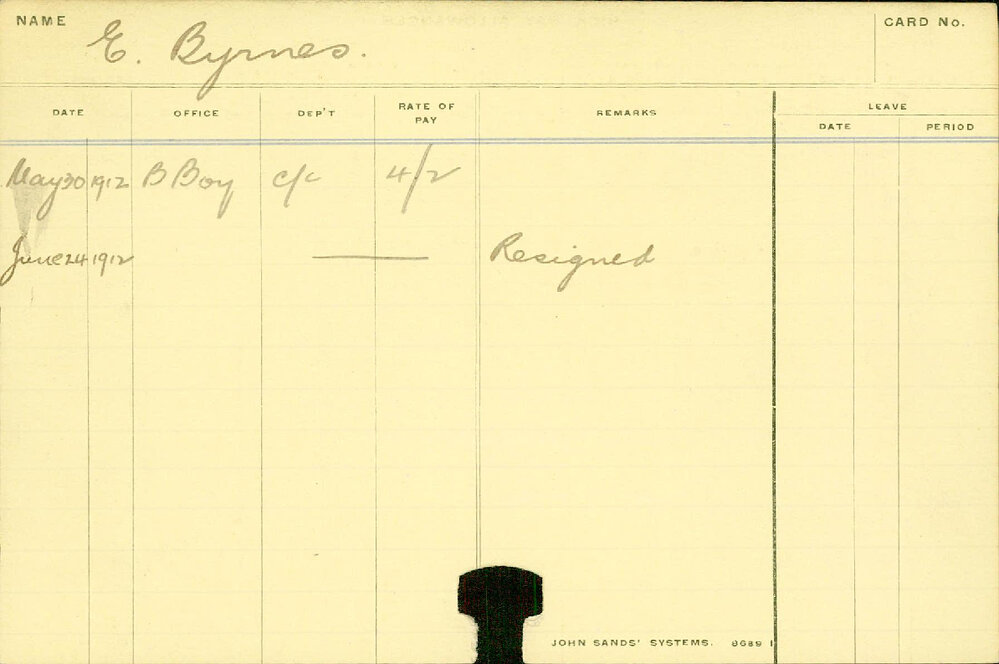 NAME E. Byrnes. CARD No.
DATE OFFICE DEP'T RATE OF PAY REMARKS LEAVE
DATE PERIOD
May 30 1912 B Boy c/c 4/2
June 24 1912 — Resigned
JOHN SANDS' SYSTEMS. 8689 1